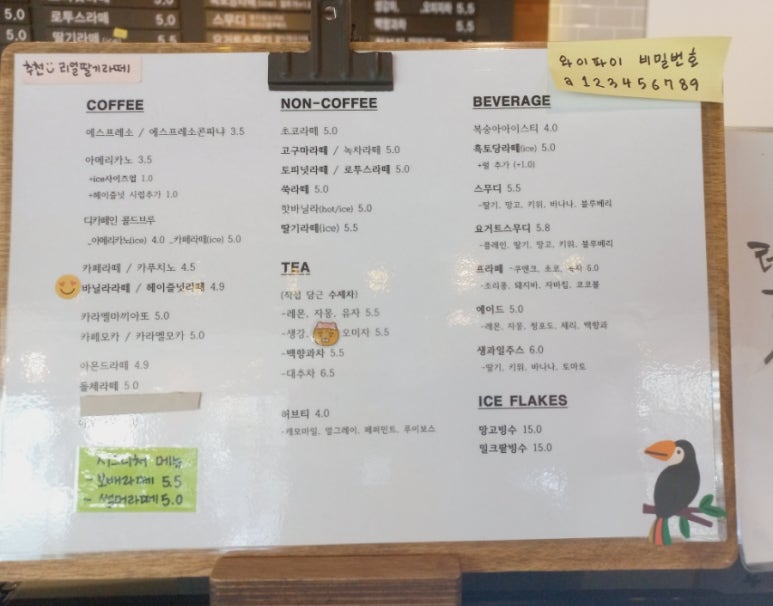 5.0 로투스라떼 5.0
5.0 딸기라떼
스무디 5.5
요거트스무디 5.8
5.5
5.5
추천 리얼딸기라떼
와이파이 비밀번호
a123456789
COFFEE
에스프레소 / 에스프레소콘파냐 3.5
아메리카노 3.5
+ice사이즈업 1.0
+헤이즐넛 시럽추가 1.0
디카페인 콜드브루
_아메리카노(ice) 4.0 _카페라떼(ice) 5.0
카페라떼 / 카푸치노 4.5
바닐라라떼 / 헤이즐넛라떼 4.9
카라멜마끼아또 5.0
카페모카 / 카라멜모카 5.0
아몬드라떼 4.9
돌체라떼 5.0
시그니쳐 메뉴
- 보배라떼 5.5
- 썸머라떼 5.0
NON-COFFEE
초코라떼 5.0
고구마라떼 / 녹차라떼 5.0
토피넛라떼 / 로투스라떼 5.0
쑥라떼 5.0
핫바닐라(hot/ice) 5.0
딸기라떼(ice) 5.5
TEA
(직접 담근 수제차)
-레몬, 자몽, 유자 5.5
-생강, 오미자 5.5
-백향과차 5.5
-대추차 6.5
허브티 4.0
-캐모마일, 얼그레이, 페퍼민트, 루이보스
BEVERAGE
복숭아아이스티 4.0
흑토당라떼(ice) 5.0
+펄 추가 (+1.0)
스무디 5.5
-딸기, 망고, 키위, 바나나, 블루베리
요거트스무디 5.8
-플레인, 딸기, 망고, 키위, 블루베리
프라페 -쿠앤크, 초코, 녹차 5.0
-조리퐁, 돼지바, 자바칩, 코코볼
에이드 5.0
-레몬, 자몽, 청포도, 체리, 백향과
생과일주스 6.0
-딸기, 키위, 바나나, 토마토
ICE FLAKES
망고빙수 15.0
밀크팥빙수 15.0